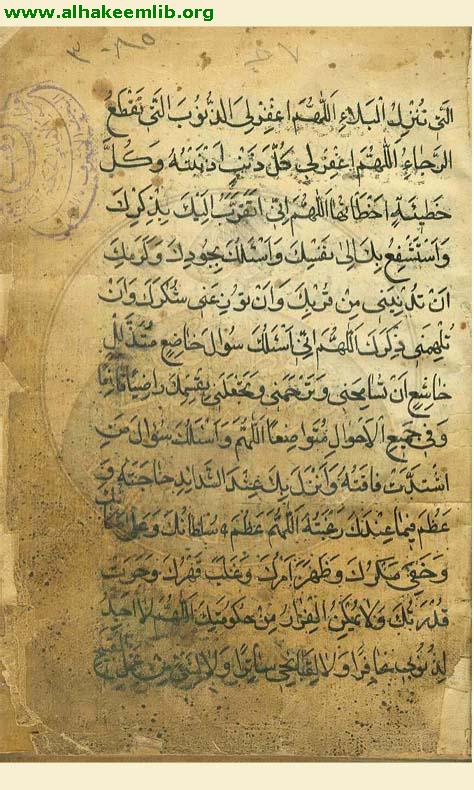 www.alhakeemlib.org
التي تنزل البلاء اللهم اغفر لي الذنوب التي تقطع
الرجاء اللهم اغفر لي كل ذنب اذنبته وكل
خطيئة اخطاتها اللهم اني اتقرب اليك بذكرك
واستشفع بك الى نفسك واسئلك بجودك وكرمك
ان تدنيني من قربك وان توزعني شكرك وان
تلهمني ذكرك اللهم اني اسئلك سؤال خاضع متذلل
خاشع ان تسامحني وترحمني وتجعلني بقسمك راضيا قانعا
وفي جميع الاحوال متواضعا اللهم واسئلك سؤال من
اشتدت فاقته وانزل بك عند الشدايد حاجته و
عظم فيما عندك رغبته اللهم عظم سلطانك وعلا مكانك
وخفي مكرك وظهر امرك وغلب قهرك وجرت
قدرتك ولا يمكن الفرار من حكومتك اللهم لا اجد
لذنوبي غافرا ولا لقبائحي ساترا ولا لشيء من عملي القبيح